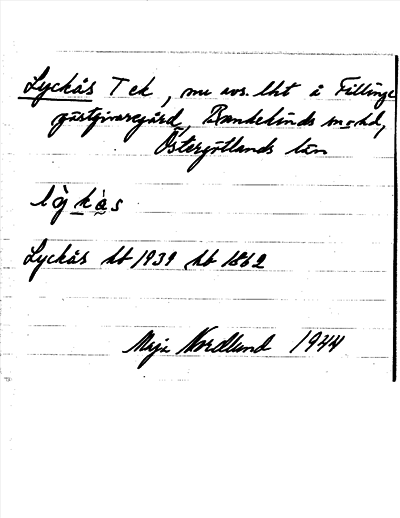 Lyckås Tek, nu avs. lht å Fillinge
gästgivaregård, Rönnekinds sn o hd,
Östergötlands län
lỳkå̀s
Lyckås hb 1939 hb 1862
Maja Nordlund 1944